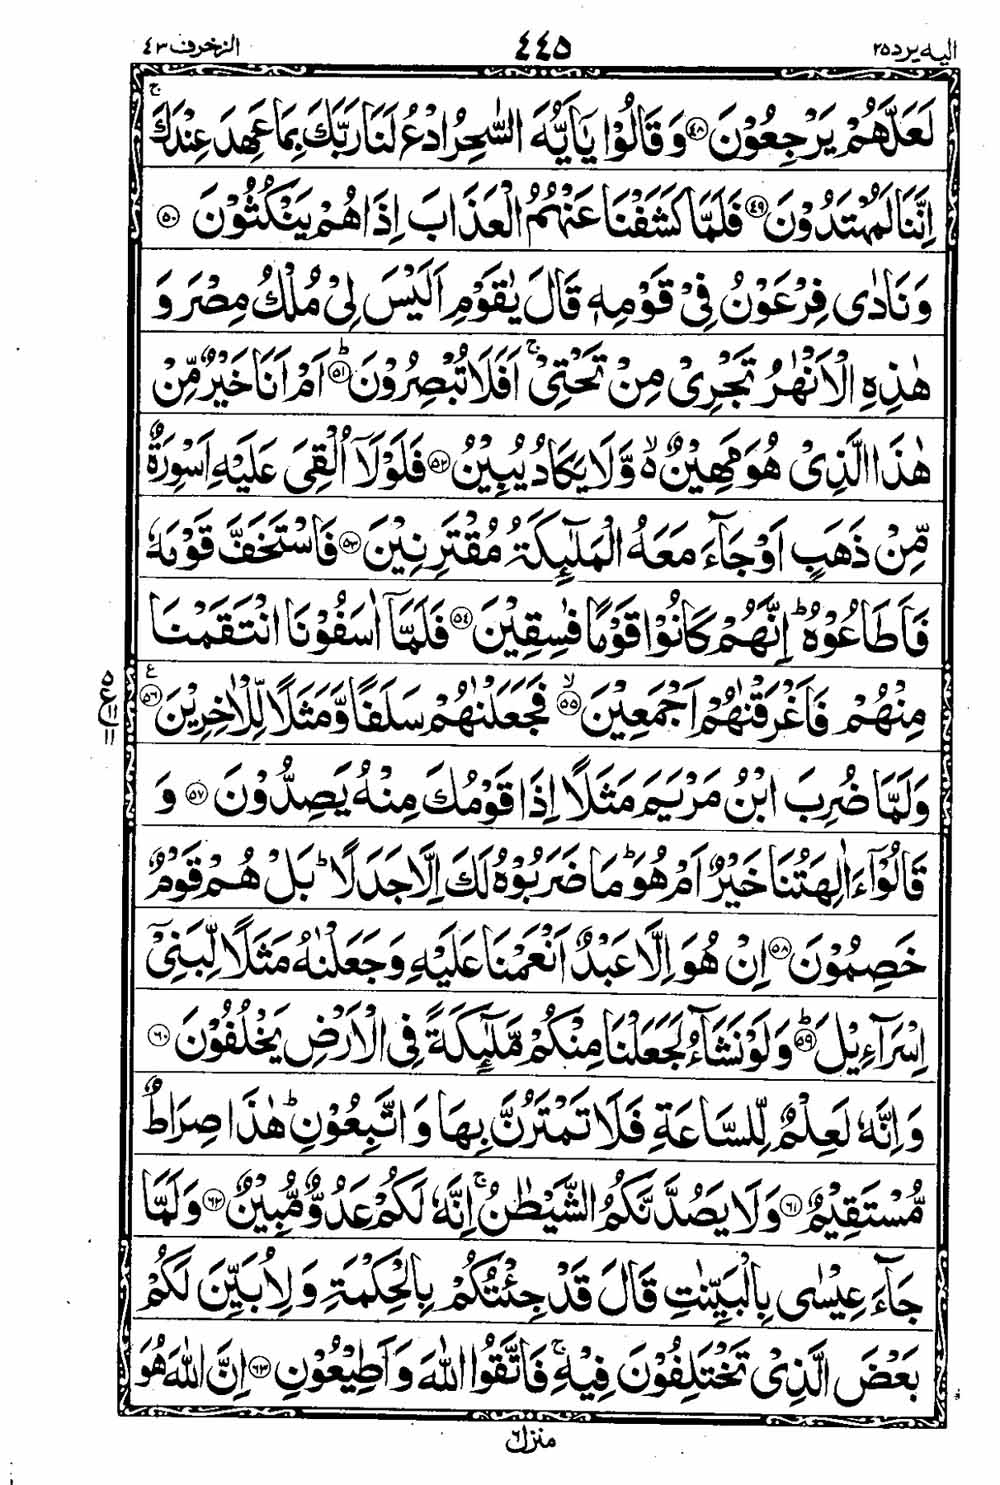 اليه يرد ٢٥
٤٤٥
الزخرف ٤٣
لَعَلَّهُمْ يَرْجِعُوْنَ ﴿٤٨﴾ وَ قَالُوْا يٰۤاَيُّهَ السّٰحِرُ ادْعُ لَنَا رَبَّكَ بِمَا عَهِدَ عِنْدَكَ ۚ
اِنَّنَا لَمُهْتَدُوْنَ ﴿٤٩﴾ فَلَمَّا كَشَفْنَا عَنْهُمُ الْعَذَابَ اِذَا هُمْ يَنْكُثُوْنَ ﴿٥٠﴾
وَ نَادٰى فِرْعَوْنُ فِيْ قَوْمِهٖ قَالَ يٰقَوْمِ اَلَيْسَ لِيْ مُلْكُ مِصْرَ وَ
هٰذِهِ الْاَنْهٰرُ تَجْرِيْ مِنْ تَحْتِيْ ۚ اَفَلَا تُبْصِرُوْنَ ﴿٥١﴾ؕ اَمْ اَنَا خَيْرٌ مِّنْ
هٰذَا الَّذِيْ هُوَ مَهِيْنٌ ۙ۬ وَّلَا يَكَادُ يُبِيْنُ ﴿٥٢﴾ فَلَوْلَاۤ اُلْقِيَ عَلَيْهِ اَسْوِرَةٌ
مِّنْ ذَهَبٍ اَوْ جَآءَ مَعَهُ الْمَلٰٓئِكَةُ مُقْتَرِنِيْنَ ﴿٥٣﴾ فَاسْتَخَفَّ قَوْمَهٗ
فَاَطَاعُوْهُ ؕ اِنَّهُمْ كَانُوْا قَوْمًا فٰسِقِيْنَ ﴿٥٤﴾ فَلَمَّاۤ اٰسَفُوْنَا انْتَقَمْنَا
مِنْهُمْ فَاَغْرَقْنٰهُمْ اَجْمَعِيْنَ ﴿٥٥﴾ۙ فَجَعَلْنٰهُمْ سَلَفًا وَّ مَثَلًا لِّلْاٰخِرِيْنَ ﴿٥٦﴾ ع
٥ ع ١١ ١١
وَ لَمَّا ضُرِبَ ابْنُ مَرْيَمَ مَثَلًا اِذَا قَوْمُكَ مِنْهُ يَصِدُّوْنَ ﴿٥٧﴾ وَ
قَالُوْۤا ءَاٰلِهَتُنَا خَيْرٌ اَمْ هُوَ ؕ مَا ضَرَبُوْهُ لَكَ اِلَّا جَدَلًا ؕ بَلْ هُمْ قَوْمٌ
خَصِمُوْنَ ﴿٥٨﴾ اِنْ هُوَ اِلَّا عَبْدٌ اَنْعَمْنَا عَلَيْهِ وَ جَعَلْنٰهُ مَثَلًا لِّبَنِيْۤ
اِسْرَآءِيْلَ ﴿٥٩﴾ؕ وَ لَوْ نَشَآءُ لَجَعَلْنَا مِنْكُمْ مَّلٰٓئِكَةً فِي الْاَرْضِ يَخْلُفُوْنَ ﴿٦٠﴾
وَ اِنَّهٗ لَعِلْمٌ لِّلسَّاعَةِ فَلَا تَمْتَرُنَّ بِهَا وَ اتَّبِعُوْنِ ؕ هٰذَا صِرَاطٌ
مُّسْتَقِيْمٌ ﴿٦١﴾ وَ لَا يَصُدَّنَّكُمُ الشَّيْطٰنُ ۚ اِنَّهٗ لَكُمْ عَدُوٌّ مُّبِيْنٌ ﴿٦٢﴾ وَ لَمَّا
جَآءَ عِيْسٰى بِالْبَيِّنٰتِ قَالَ قَدْ جِئْتُكُمْ بِالْحِكْمَةِ وَ لِاُبَيِّنَ لَكُمْ
بَعْضَ الَّذِيْ تَخْتَلِفُوْنَ فِيْهِ ۚ فَاتَّقُوا اللّٰهَ وَ اَطِيْعُوْنِ ﴿٦٣﴾ اِنَّ اللّٰهَ هُوَ
منزل ٦